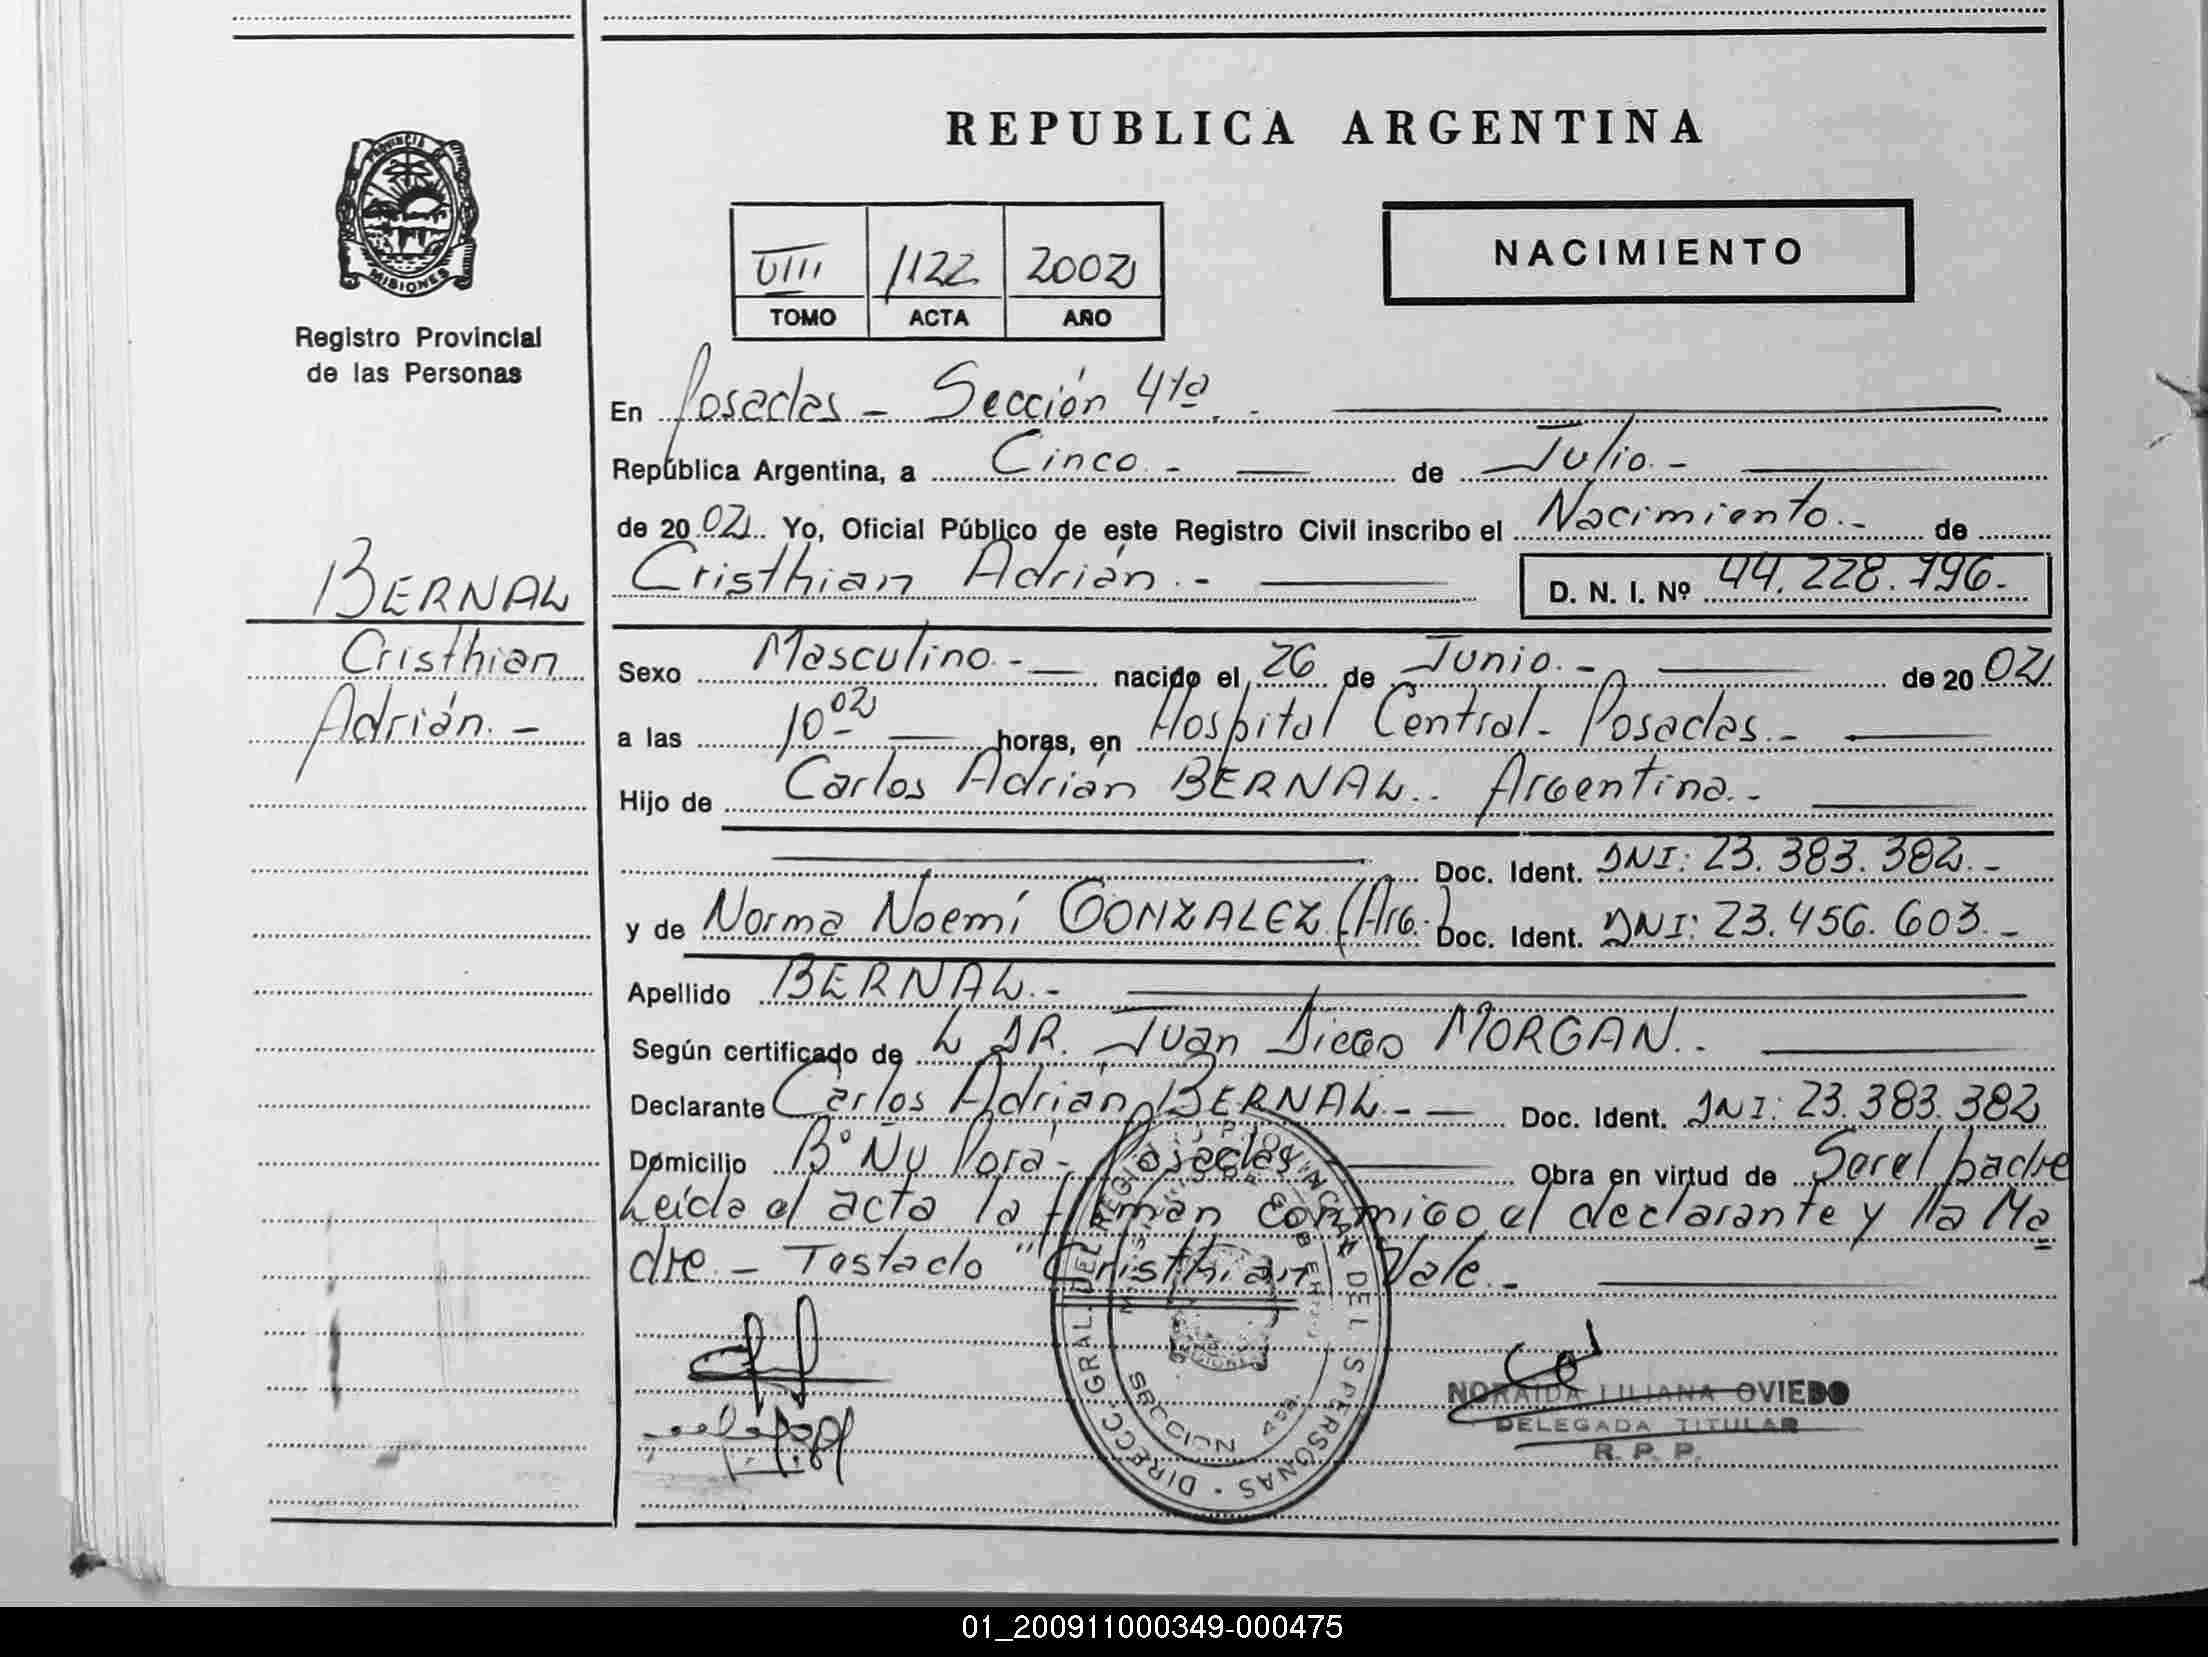 REPUBLICA ARGENTINA
PROVINCIA DE
MISIONES
Registro Provincial
de las Personas
VIII 1122 2002
TOMO ACTA AÑO
NACIMIENTO
En Posadas - Sección 4ta. -
República Argentina, a Cinco.- de Julio.-
de 2002. Yo, Oficial Público de este Registro Civil inscribo el Nacimiento.- de
Cristhian Adrián.- D. N. I. Nº 44.228.796.-
BERNAL
Cristhian
Adrián.-
Sexo Masculino.- nacido el 26 de Junio.- de 2002
a las 10 02 horas, en Hospital Central - Posadas.-
Hijo de Carlos Adrián BERNAL.. Argentina.-
Doc. Ident. DNI: 23.383.382.-
y de Norma Noemí GONZALEZ (Arg.) Doc. Ident. DNI: 23.456.603.-
Apellido BERNAL.-
Según certificado de L DR. Juan Diego MORGAN..
Declarante Carlos Adrián BERNAL.- Doc. Ident. DNI: 23.383.382
Domicilio Bº Ñu Porá - Posadas - Obra en virtud de Ser el padre
Leída el acta la firman conmigo el declarante y la Ma
dre. - Testado "Cristhian" Vale.-
DIRECC. GRAL. DEL REGISTRO PROVINCIAL DE LAS PERSONAS
SECCION 4ta.
NORAIDA LILIANA OVIEDO
DELEGADA TITULAR
R. P. P.
01_200911000349-000475